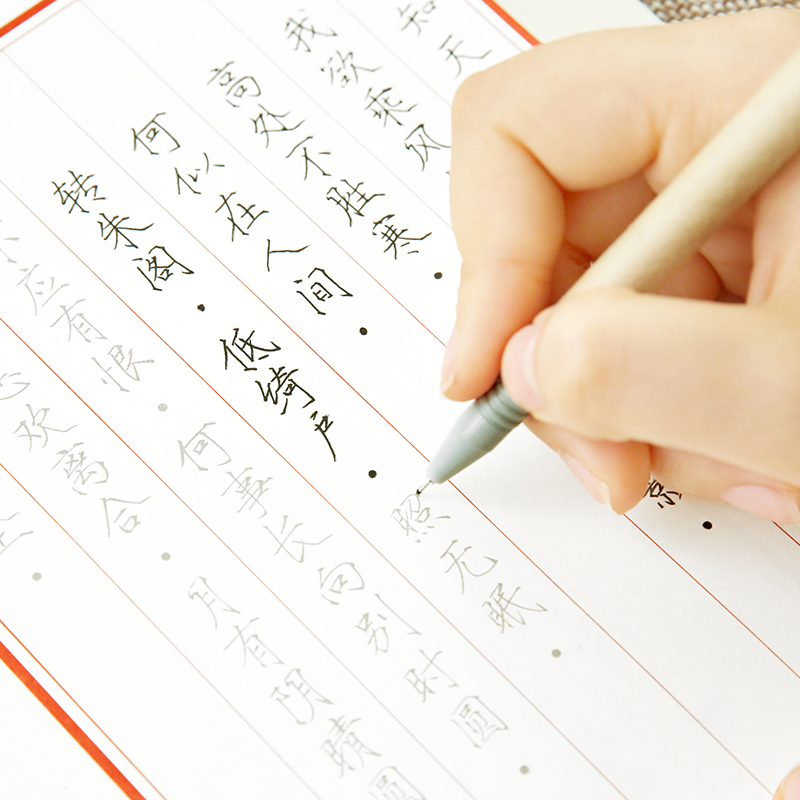 知天
我欲乘风
高处不胜寒·
何似在人间·
转朱阁·低绮户·照无眠·
应有恨·何事长向别时圆·
欢离合·月有阴晴圆